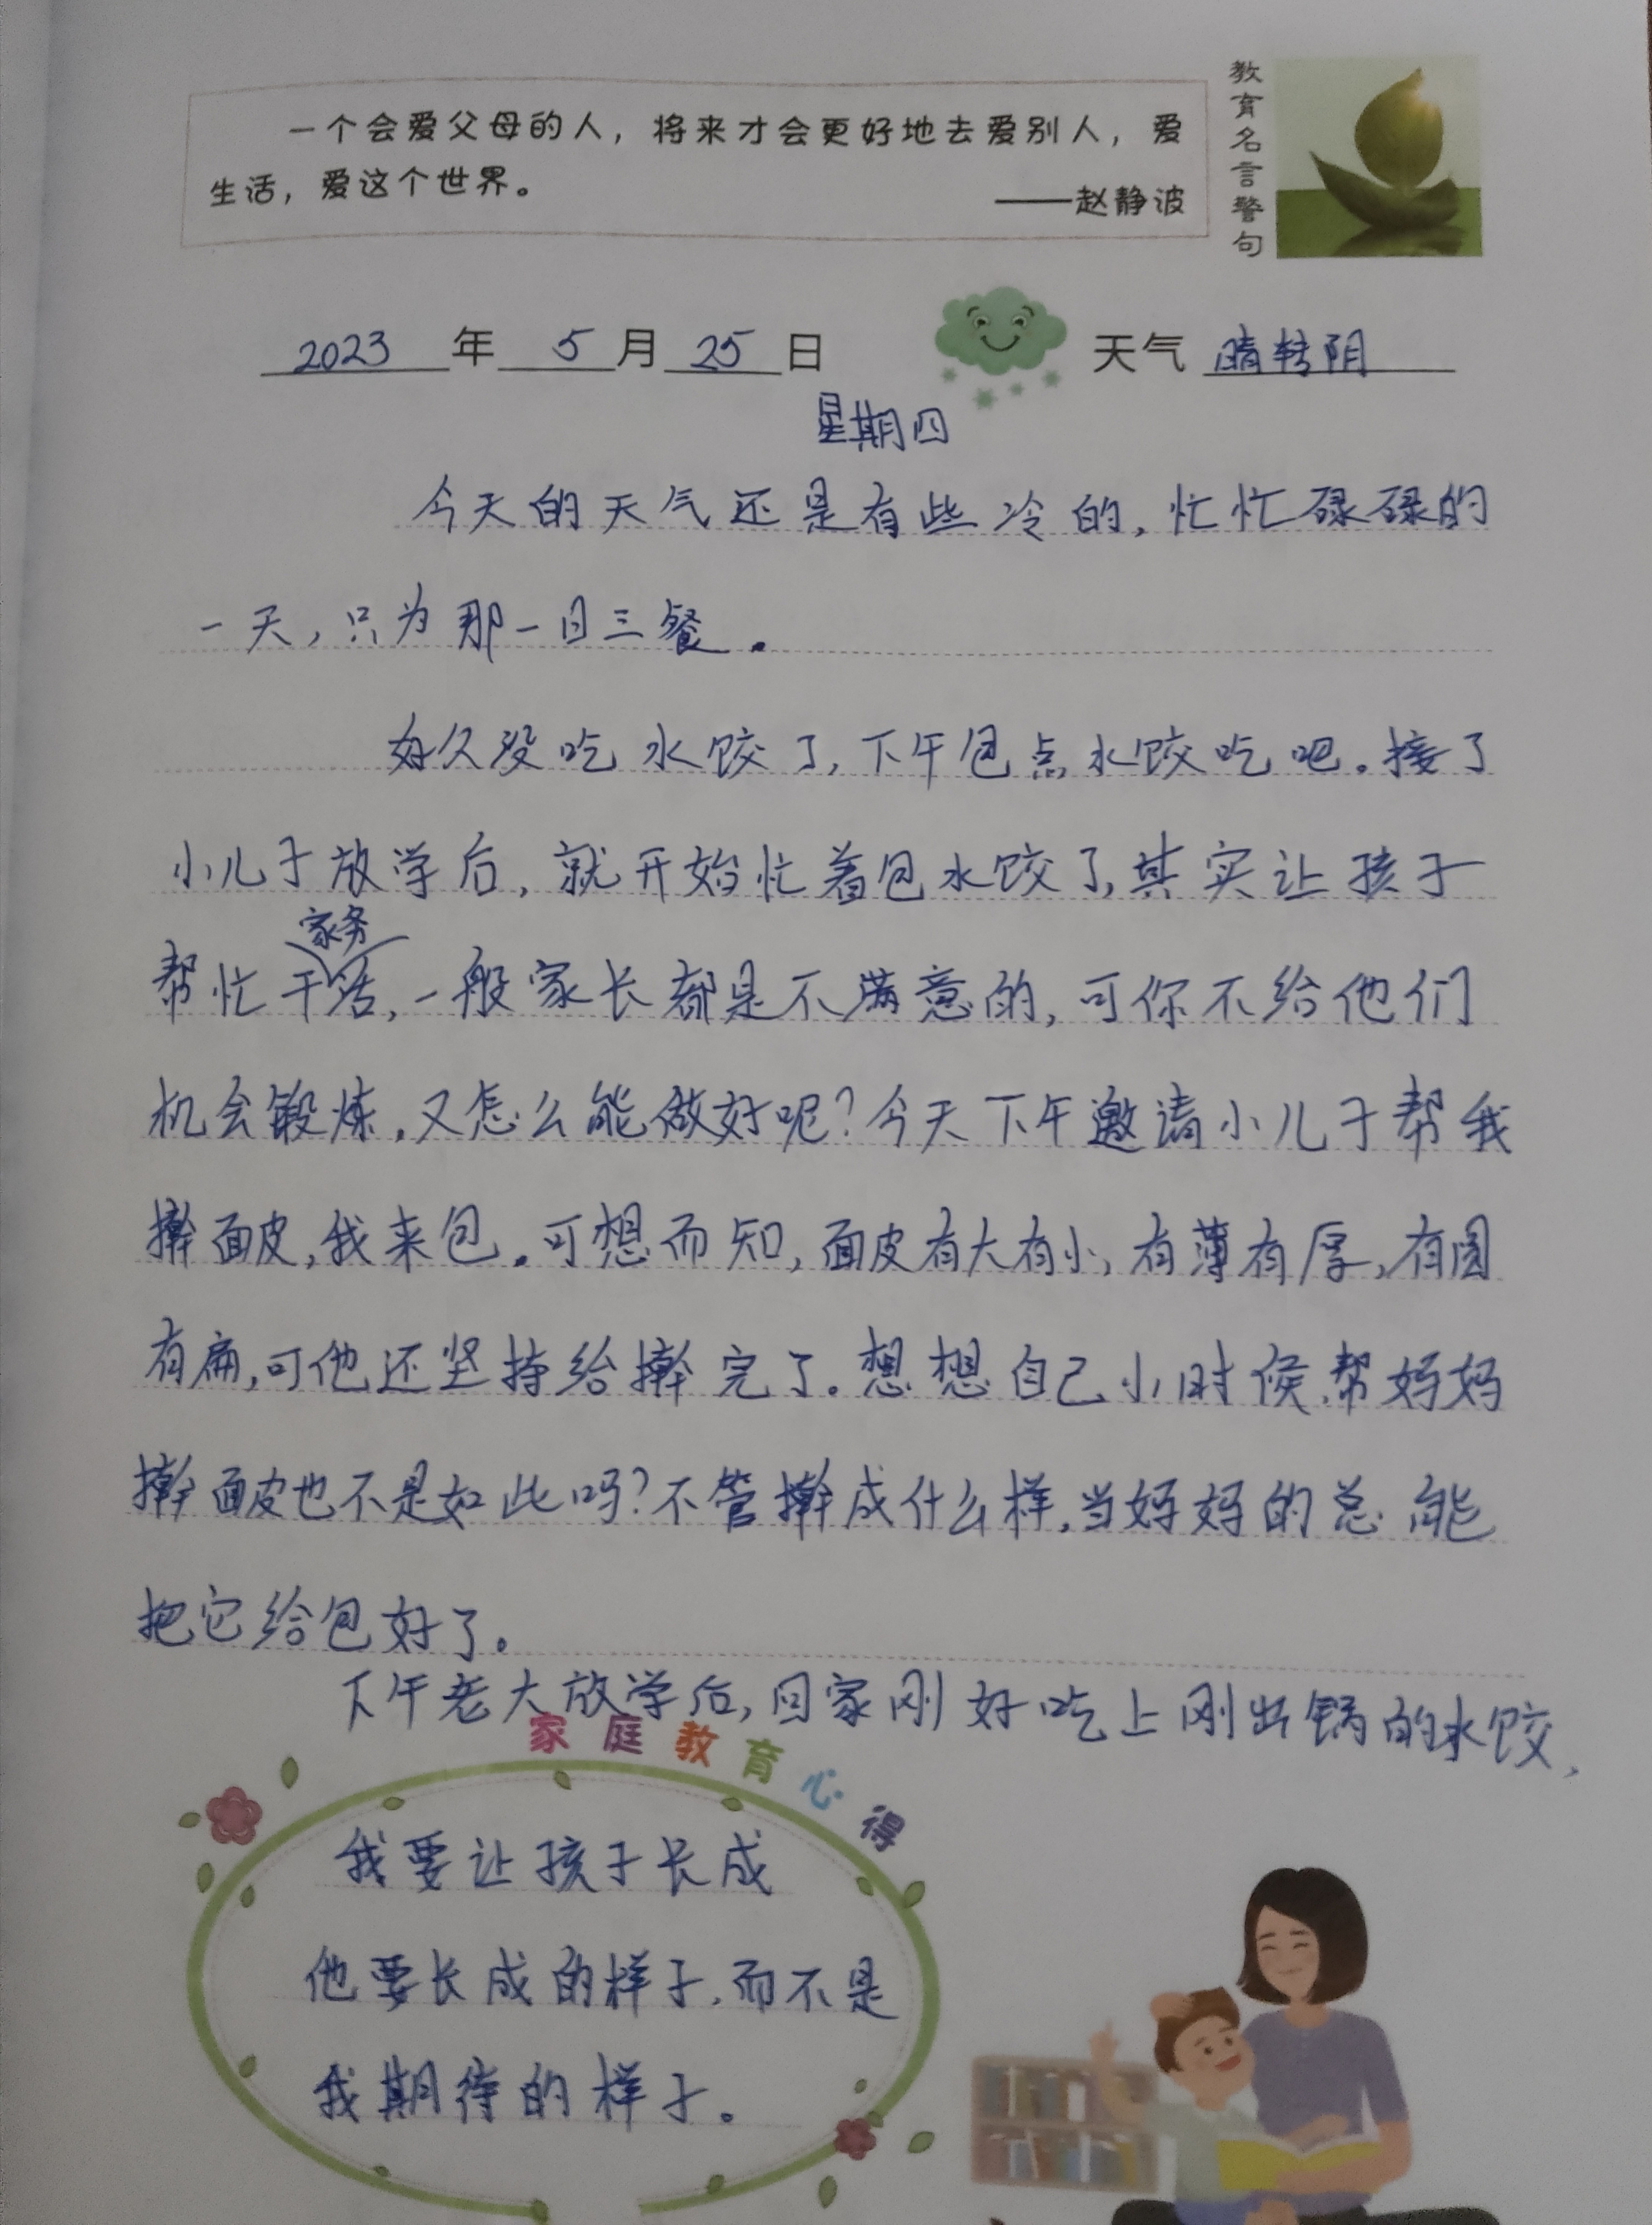 一个会爱父母的人，将来才会更好地去爱别人，爱
生活，爱这个世界。
——赵静波
教育名言警句
2023年5月25日 天气 晴转阴
星期四
今天的天气还是有些冷的，忙忙碌碌的
一天，只为那一日三餐。
好久没吃水饺了，下午包点水饺吃吧。接了
小儿子放学后，就开始忙着包水饺了，其实让孩子
家务
帮忙干活，一般家长都是不满意的，可你不给他们
机会锻炼，又怎么能做好呢？今天下午邀请小儿子帮我
擀面皮，我来包。可想而知，面皮有大有小，有薄有厚，有圆
有扁，可他还坚持给擀完了。想想自己小时候，帮妈妈
擀面皮也不是如此吗？不管擀成什么样，当妈妈的总能
把它给包好了。
下午老大放学后，回家刚好吃上刚出锅的水饺，
家庭教育心得
我要让孩子长成
他要长成的样子，而不是
我期待的样子。